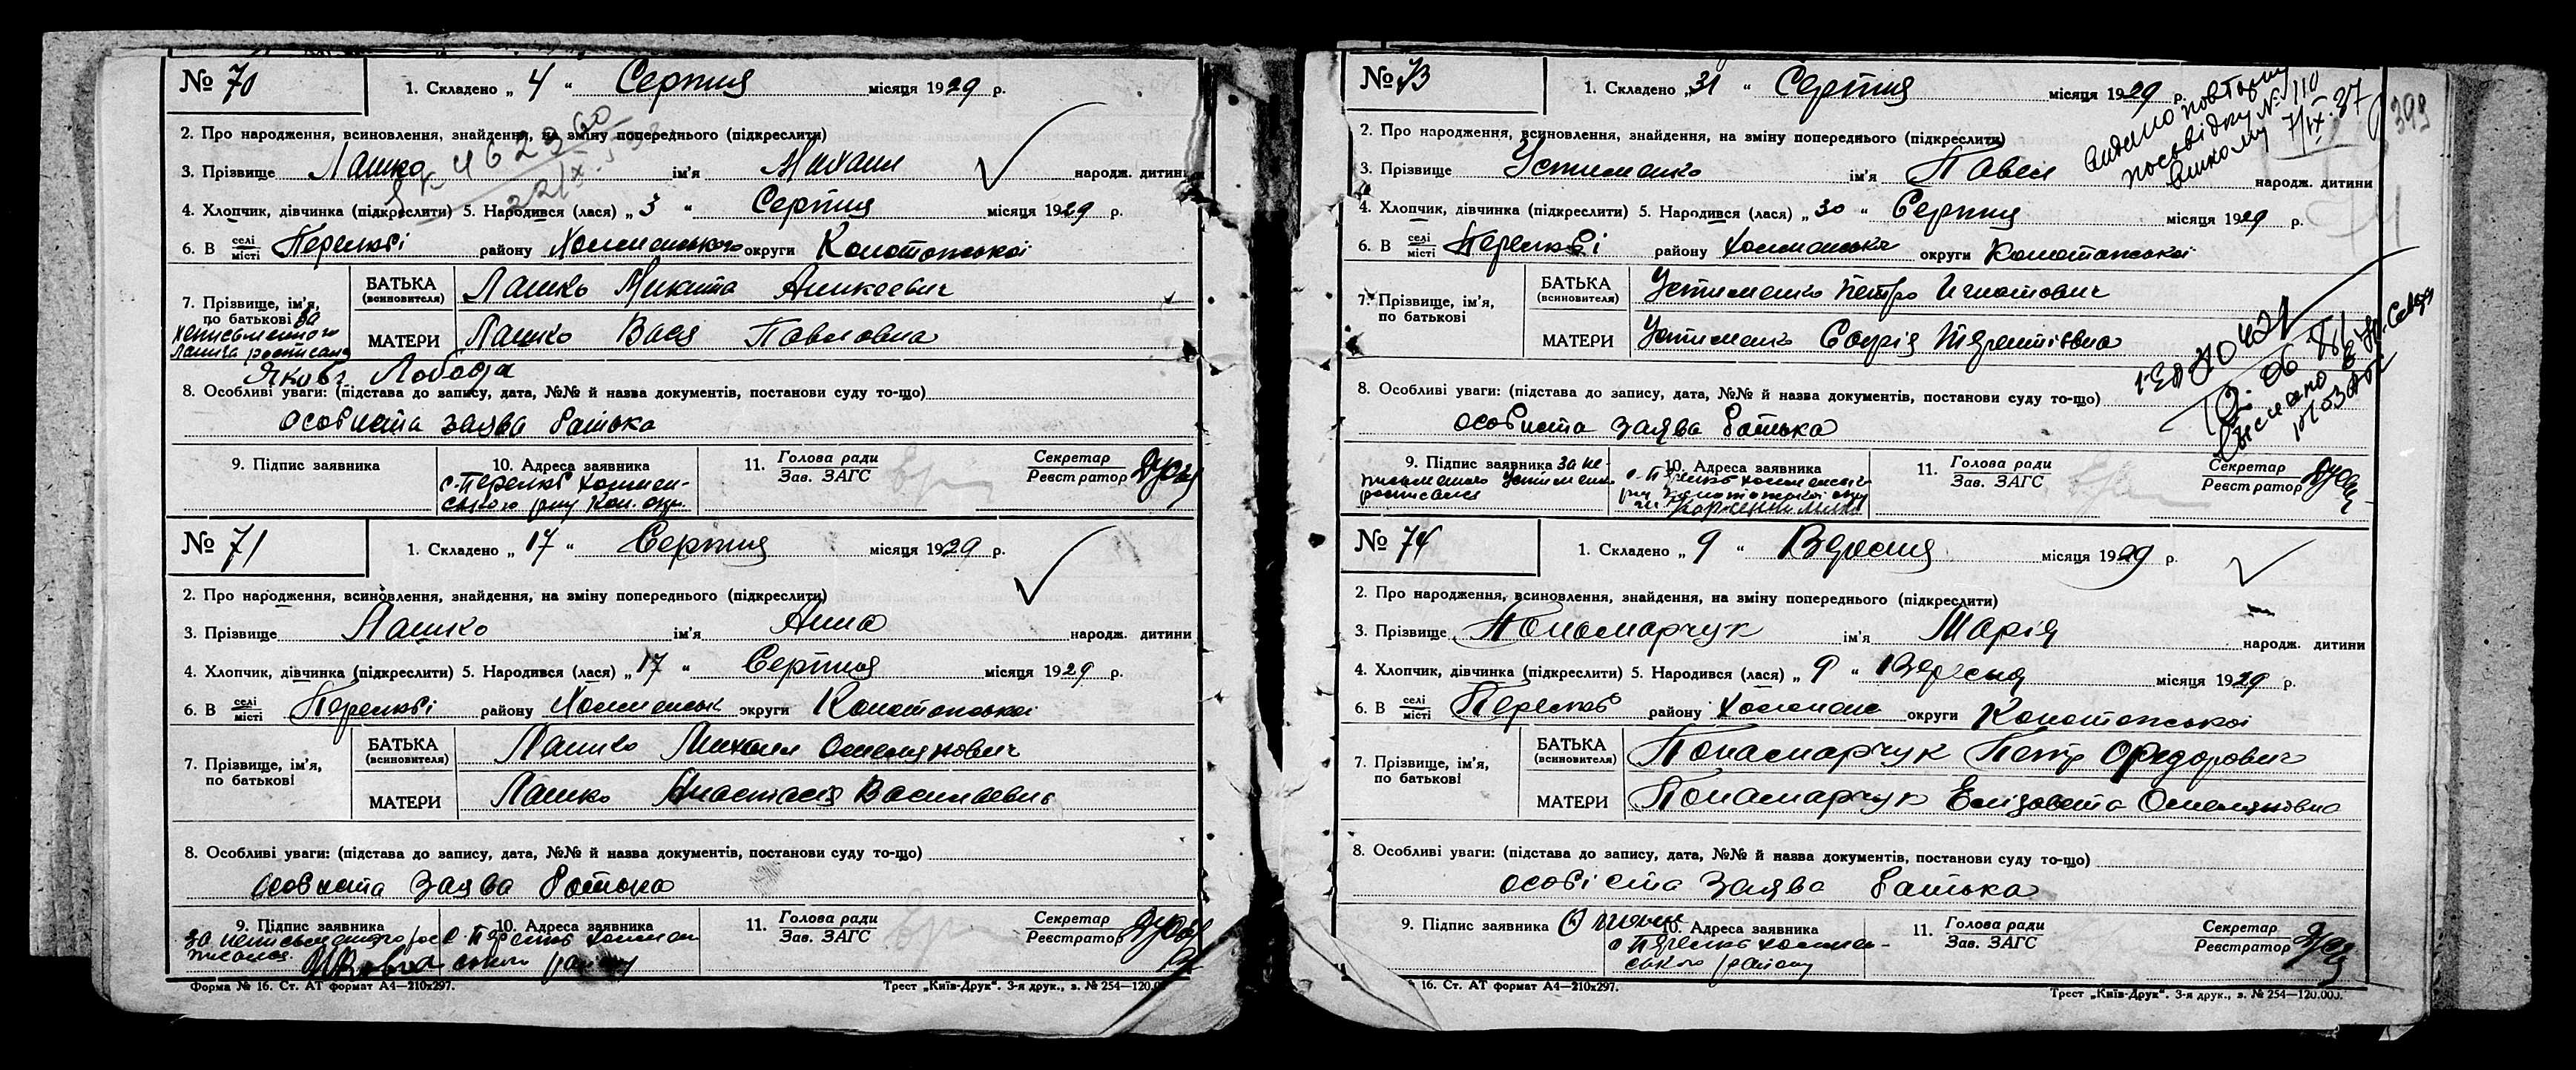 № 70
1. Складено „ 4 “ Серпня місяця 1929 р.
2. Про народження, всиновлення, знайдення, на зміну попереднього (підкреслити)
3. Прізвище Лашко ім'я Михаил народж. дитини
4. Хлопчик, дівчинка (підкреслити) 5. Народився (лася) „ 3 “ Серпня місяця 1929 р.
6. В селі місті Перелюбі району Холменського округи Конотопської
7. Прізвище, ім'я, по батькові
БАТЬКА (всиновителя) Лашко Микита
МАТЕРИ Лашко Павловна
за неписьменного Лашка росписався
Яковъ Лобода
8. Особливі уваги: (підстава до запису, дата, №№ й назва документів, постанови суду то-що)
особиста заява батька
9. Підпис заявника
10. Адреса заявника
с-Перелюб Холмен-
ського р-ну Кон. окр.
11. Голова ради
Зав. ЗАГС
Секретар
Реєстратор
№ 71
1. Складено „ 17 “ Серпня місяця 1929 р.
2. Про народження, всиновлення, знайдення, на зміну попереднього (підкреслити)
3. Прізвище Лашко ім'я Анна народж. дитини
4. Хлопчик, дівчинка (підкреслити) 5. Народився (лася) „ 17 “ Серпня місяця 1929 р.
6. В селі місті Перелюбі району Холменськ округи Конотопської
7. Прізвище, ім'я, по батькові
БАТЬКА (всиновителя) Лашко Михаил Омелянович
МАТЕРИ Лашко Анастасія Василевна
8. Особливі уваги: (підстава до запису, дата, №№ й назва документів, постанови суду то-що)
особиста заява батька
9. Підпис заявника
за неписьменного рос-
писався
10. Адреса заявника
с Перелюб Холмен
ського району
11. Голова ради
Зав. ЗАГС
Секретар
Реєстратор
Форма № 16. Ст. АТ формат А4—210х297.
Трест „Київ-Друк“. 3-я друк., з. № 254—120.0
№ 73
1. Складено „ 31 “ Серпня місяця 1929 р.
видано повторну
посвідку № 110
7/IX.37
393
2. Про народження, всиновлення, знайдення, на зміну попереднього (підкреслити)
3. Прізвище Устименко ім'я Павел народж. дитини
4. Хлопчик, дівчинка (підкреслити) 5. Народився (лася) „ 30 “ Серпня місяця 1929 р.
6. В селі місті Перелюбі району Холменськ округи Конотопської
7. Прізвище, ім'я, по батькові
БАТЬКА (всиновителя) Устименко Петро Игнатович
МАТЕРИ Устименко Софія Терентіївна
8. Особливі уваги: (підстава до запису, дата, №№ й назва документів, постанови суду то-що)
особиста заява батька
9. Підпис заявника за не-
письменого Устименк
росписався
10. Адреса заявника
с. Перелюб Холменськ
11. Голова ради
Зав. ЗАГС
Секретар
Реєстратор
№ 74
1. Складено „ 9 “ Вересня місяця 1929 р.
2. Про народження, всиновлення, знайдення, на зміну попереднього (підкреслити)
3. Прізвище Пономарчук ім'я Марія народж. дитини
4. Хлопчик, дівчинка (підкреслити) 5. Народився (лася) „ 9 “ Вересня місяця 1929 р.
6. В селі місті Перелюб району Холменс округи Конотопської
7. Прізвище, ім'я, по батькові
БАТЬКА (всиновителя) Понамарчук Петр Федорович
МАТЕРИ Понамарчук Елізовета Омеляновна
8. Особливі уваги: (підстава до запису, дата, №№ й назва документів, постанови суду то-що)
особіста заява батька
9. Підпис заявника
10. Адреса заявника
с Перелюб Холмен-
ського району
11. Голова ради
Зав. ЗАГС
Секретар
Реєстратор
16. Ст. АТ формат А4—210х297.
Трест „Київ-Друк“. 3-я друк., з. № 254—120.000.